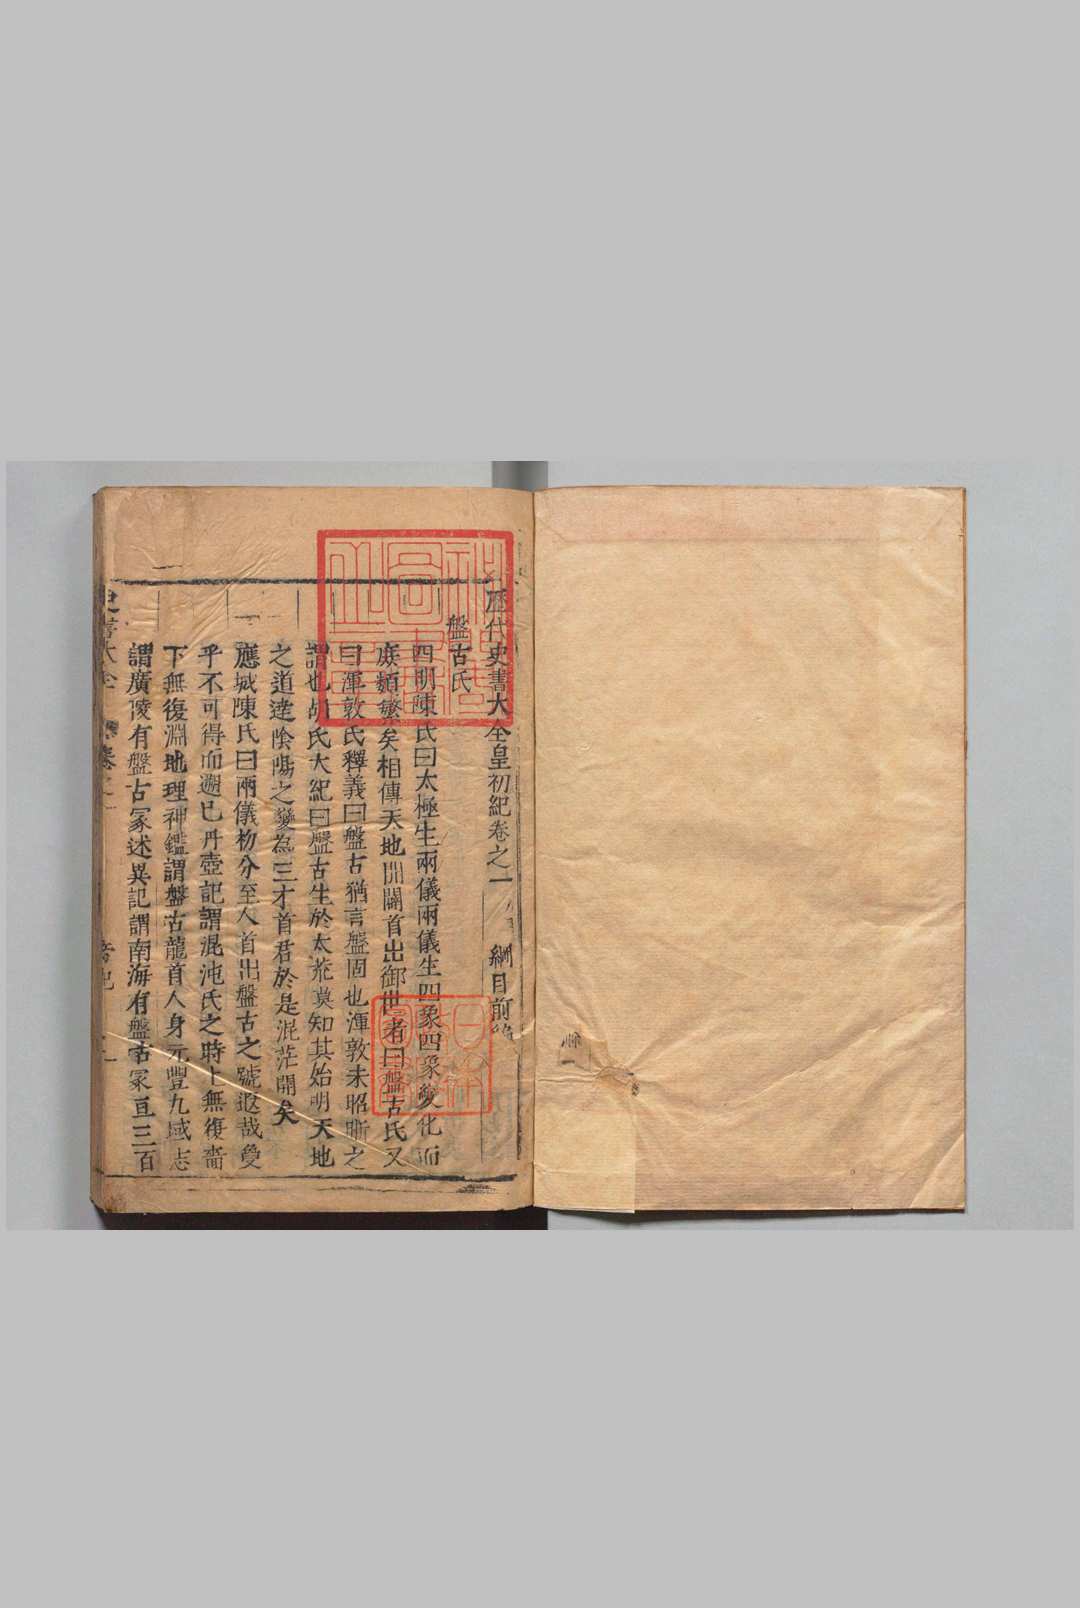 歷代史書大全皇初紀卷之一 綱目前
盤古氏
四明陳氏曰太極生兩儀兩儀生四象四象變化而
庶類繁矣相傳天地開闢首出御世者曰盤古氏又
曰渾敦氏釋義曰盤古猶言盤固也渾敦未昭晣之
謂也胡氏大紀曰盤古生於太荒莫知其始明天地
之道達陰陽之變為三才首君於是混茫開矣
應城陳氏曰兩儀初分至人首出盤古之號遐哉夐
乎不可得而遡已丹壺記謂混沌氏之時上無復
下無復淵地理神鑑謂盤古龍首人身元豐九域志
謂廣陵有盤古冢述異記謂南海有盤古冢亘三百
史書大全 卷之一